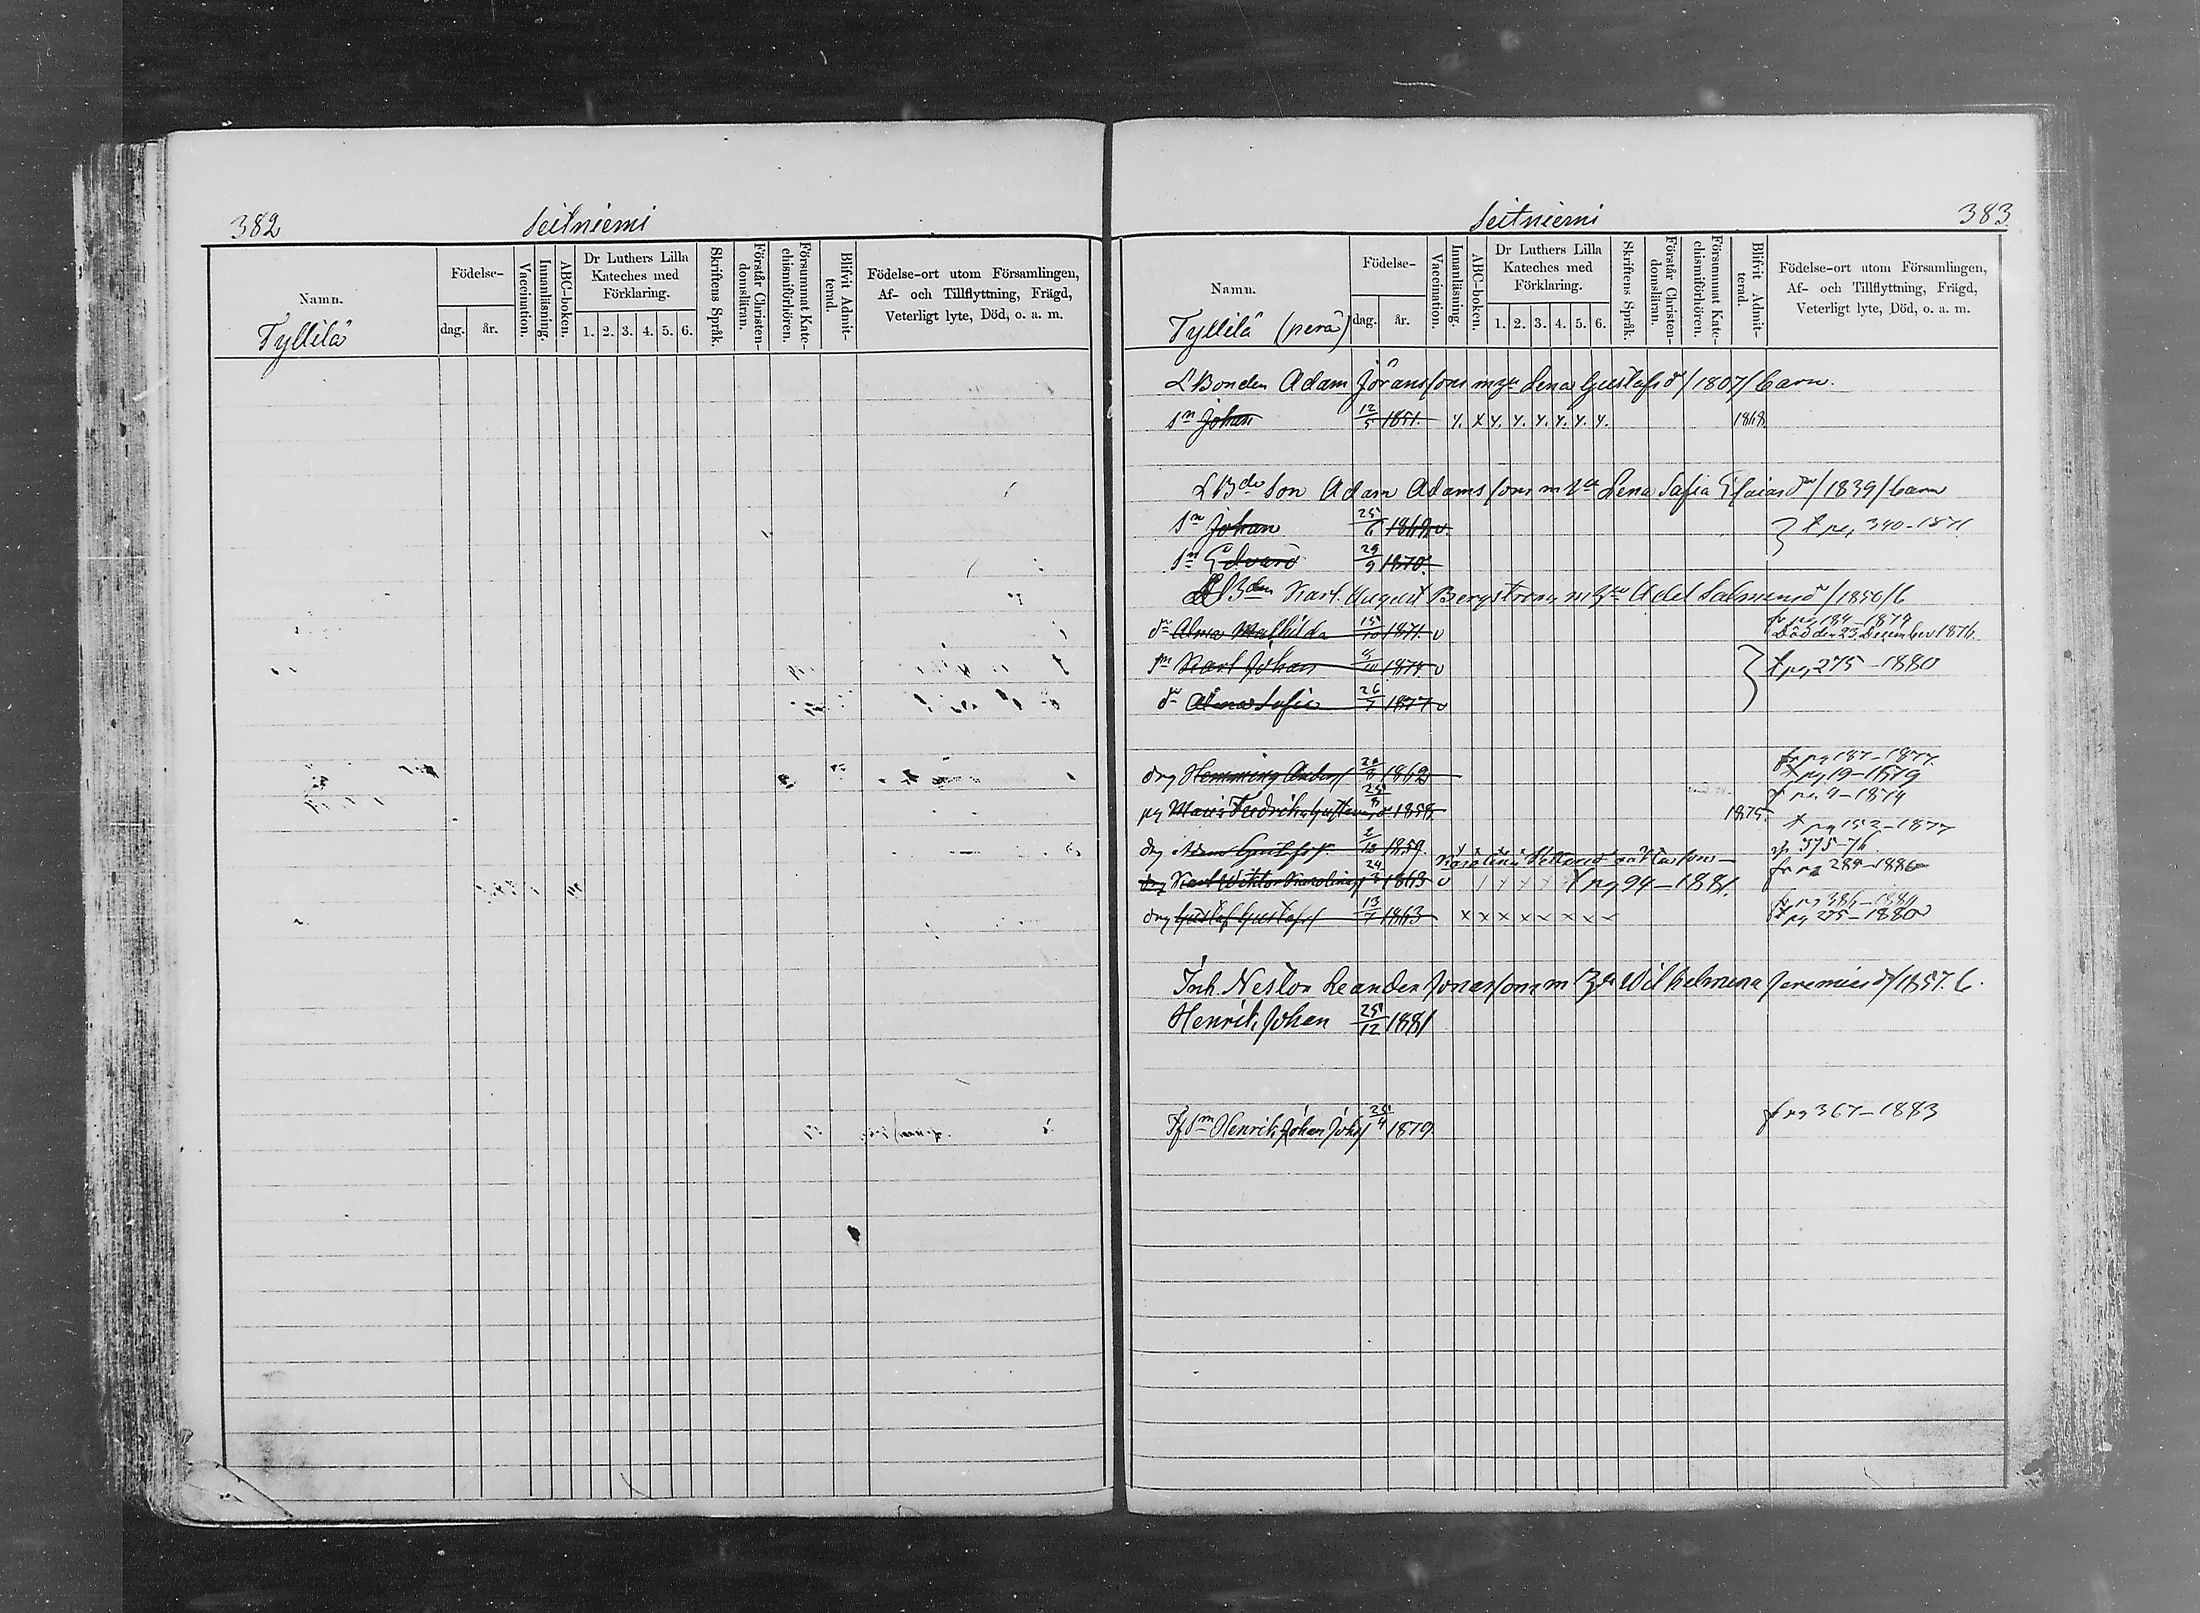 382
Seitniemi
Namn.
Födelse-
dag.
år.
Vaccination.
Innanläsning.
ABC-boken.
Dr Luthers Lilla
Kateches med
Förklaring.
1. 2. 3. 4. 5. 6.
Skriftens Språk.
Förstår Christen-
domsläran.
Försummat Kate-
chismiförhören.
Blifvit Admit-
terad.
Födelse-ort utom Församlingen,
Af- och Tillflyttning, Frägd,
Veterligt lyte, Död, o. a. m.
Tyllilä
Seitniemi
383
Namn.
Födelse-
dag.
år.
Vaccination.
Innanläsning.
ABC-boken.
Dr Luthers Lilla
Kateches med
Förklaring.
1. 2. 3. 4. 5. 6.
Skriftens Språk.
Förstår Christen-
domsläran.
Försummat Kate-
chismiförhören.
Blifvit Admit-
terad.
Födelse-ort utom Församlingen,
Af- och Tillflyttning, Frägd,
Veterligt lyte, Död, o. a. m.
Tyllilä (perä)
Bonden Adam Göransson Lena Gustafsd /1807/ barn.
sn Johan 12/5 1851. 1868
Son Adam Adamsson Lena Safia /1839/ barn
sn Johan 25/6 1869 v. 340-1871
sn Edvard 29/9 1870.
Karl August Bergström Adel /1850/ b
dr Alma Mathilda 15/10 1871 v Död den 23 December 1876.
sn Karl Johan 1874 v pg 275-1880
dr Alma Sofia 26/7 1877 v
drg Hemming 20/8 1862 fr pg 187-1877
pg 19-1879
pg Maria Fredrika 25 1858. 1875. pg 4-1874
pg 152-1877
drg 1859. 575-76
fr pg 284-1886
drg Karl Wiktor 24/3 1863 v pg 94-1881.
drg Gustaf Gustafss 13/7 1863 × × × × × × × ×
pg 275-1880
Inh. Nestor Leander Jonasson Wilhelmina Jeremiasd /1857. b.
Henrik Johan 25/12 1881
Henrik Johan 1879. fr pg 367-1883